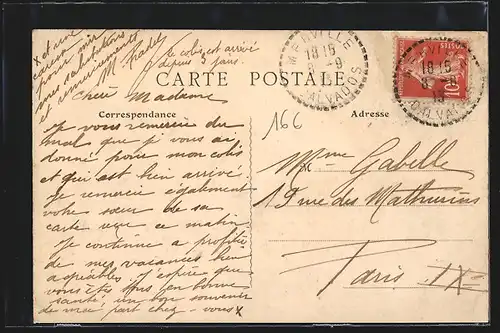 x et une
caresse
pour mir
mes salutations
et remerciements
M. Pradel
le colis est arrivé
depuis 3 jours.
CARTE POSTALE
MEUVILLE
18 15
9
CALVADOS
18 15
CALVADOS
POSTES
10
Correspondance
Adresse
166
Chère Madame
Je vous remercie du
mal que je vous ai
donné pour mon colis
et qui est bien arrivé.
Je remercie également
votre sœur de sa
carte reçue ce matin
Je continue à profiter
de mes vacances bien
agréables. J'espère que
vous êtes tous en bonne
santé, un bon souvenir
de ma part chez-vous x
Mme Gabelle
19 rue des Mathurins
Paris IXe